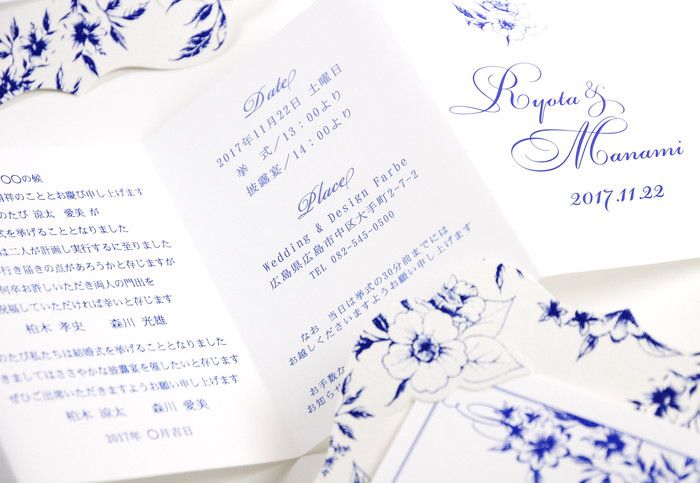 〇〇の候
清祥のこととお慶び申し上げます
のたび 涼太 愛美 が
式を挙げることとなりました
は二人が計画し実行するに至りました
行き届きの点があろうかと存じますが
何卒お許しいただき両人の門出を
祝福していただければ幸いと存じます
柏木 孝史 森川 光雄
のたび私たちは結婚式を挙げることとなりました
きましてはささやかな披露宴を催したいと存じます
ぜひご出席いただきますようお願い申し上げます
柏木 涼太 森川 愛美
2017年 〇月吉日
Date
2017年11月22日 土曜日
挙 式/13:00より
披露宴/14:00より
Place
Wedding & Design Farbe
広島県広島市中区大手町2-7-2
TEL 082-545-0500
なお 当日は挙式の30分前までには
お越しくださいますようお願い申し上げます
お手数な
お知らせ
Ryota &
Manami
2017.11.22